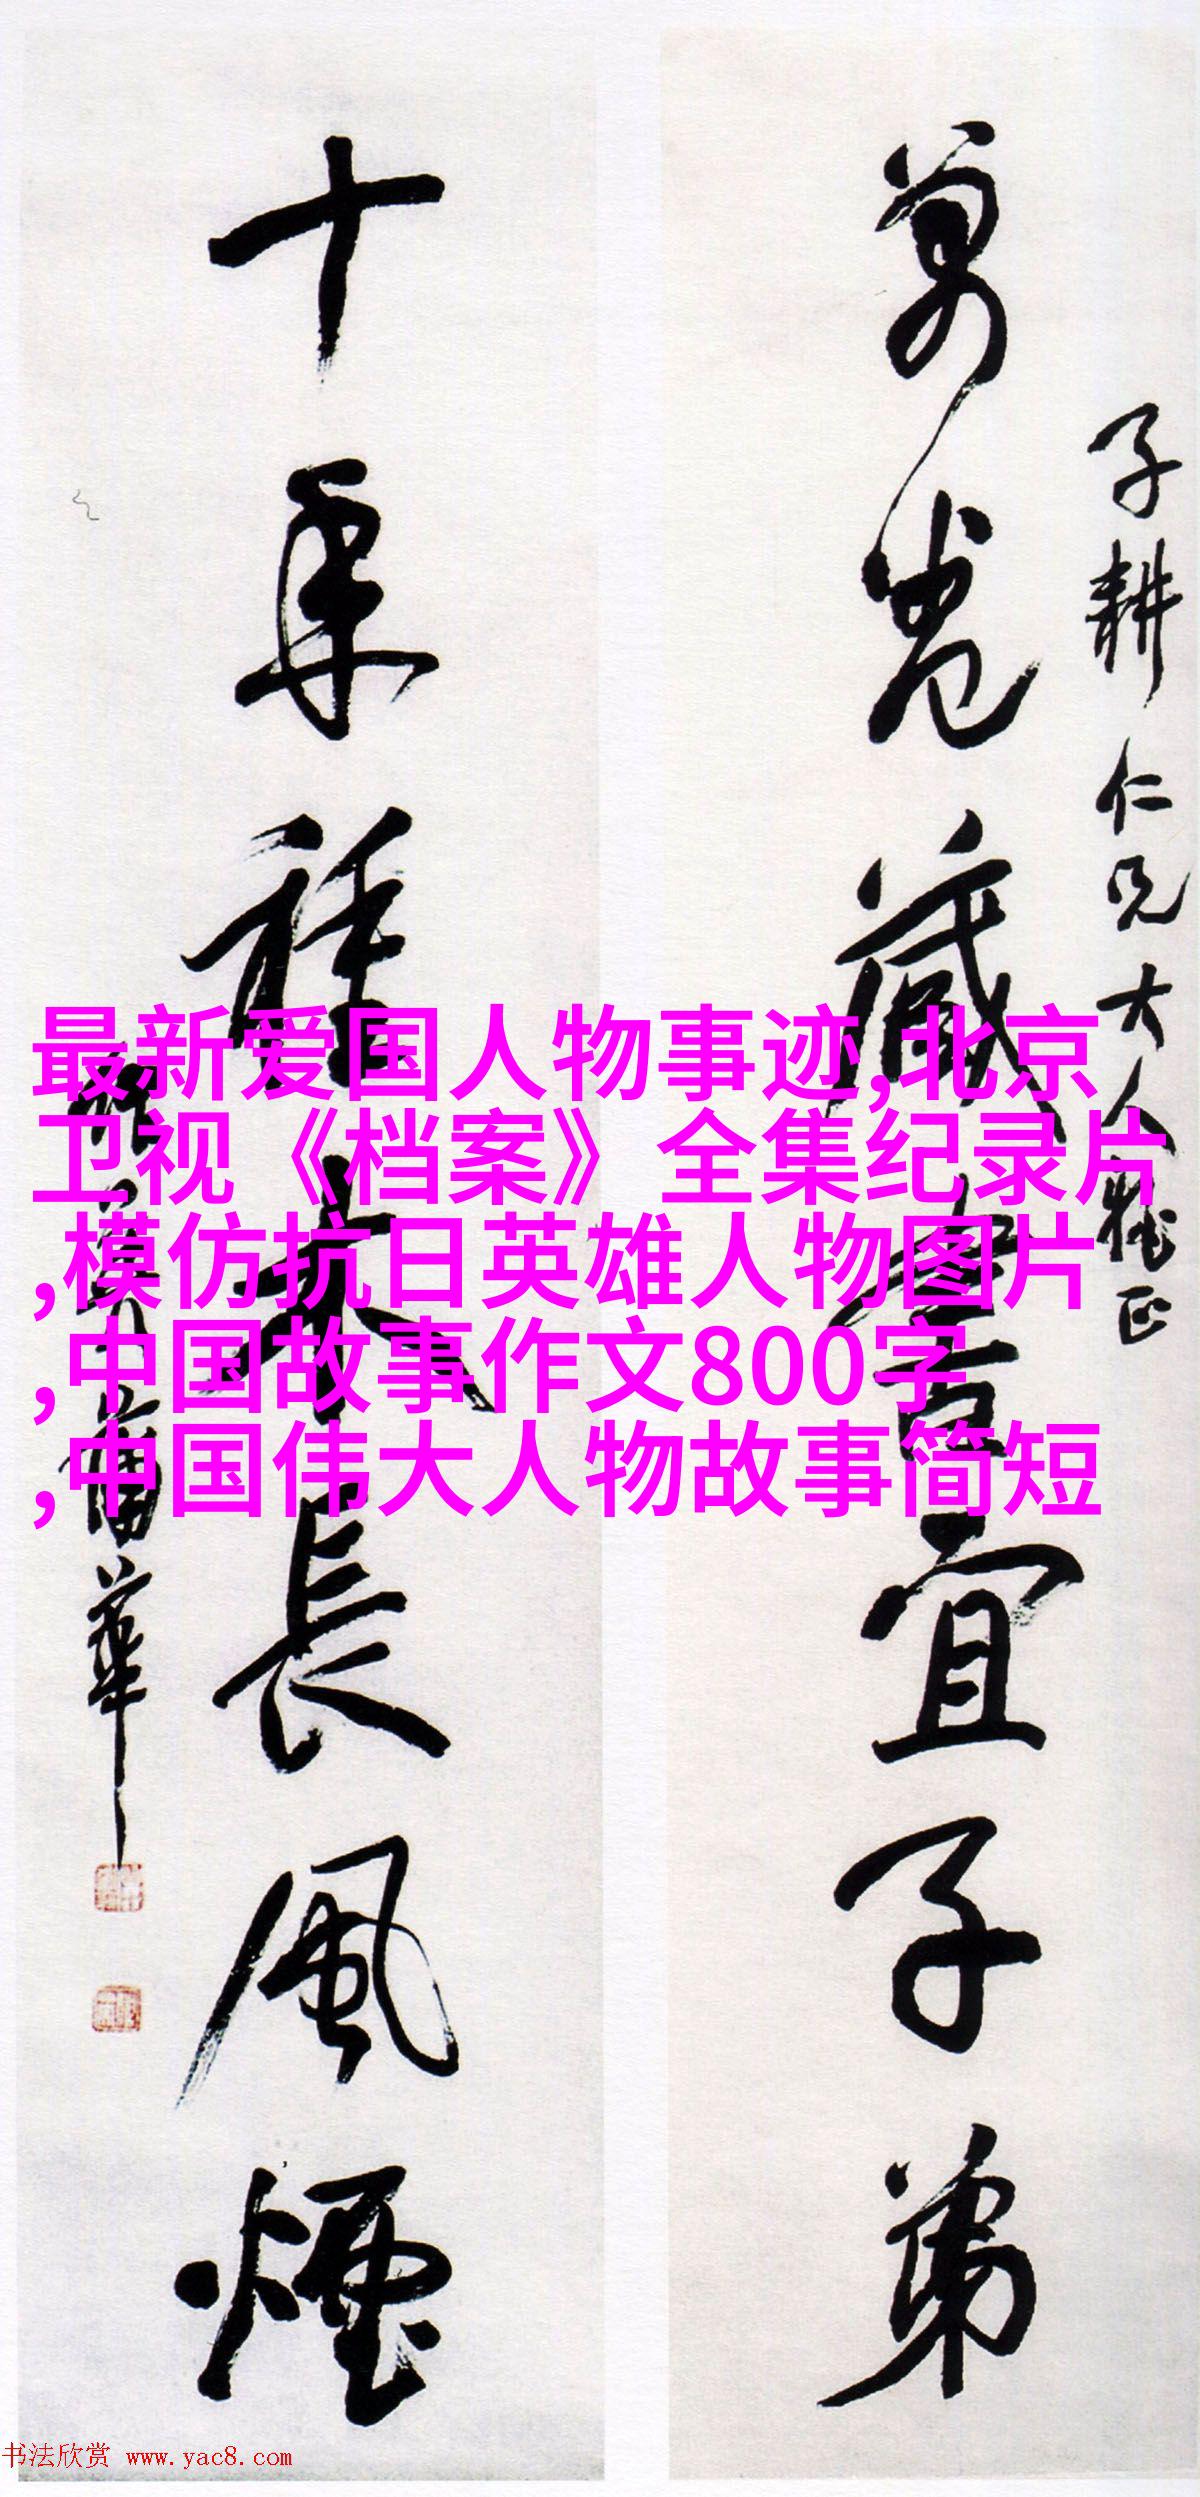 子耕仁兄大人雅正
萬卷藏書宜子弟
十年種木長風煙
蒲華
最新爱国人物事迹,北京
卫视《档案》全集纪录片
,模仿抗日英雄人物图片
,中国故事作文800字
,中国伟大人物故事简短
书法欣赏 www.yac8.com